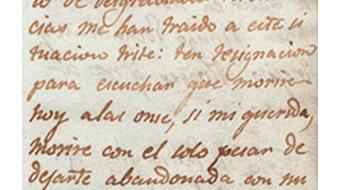 cias me han traido a este si
tuacion triste: ten resignacion
para escuchar que morire
hoy a las onse, si mi querida,
morire con el solo pesar de
dejarte abandonada con nu